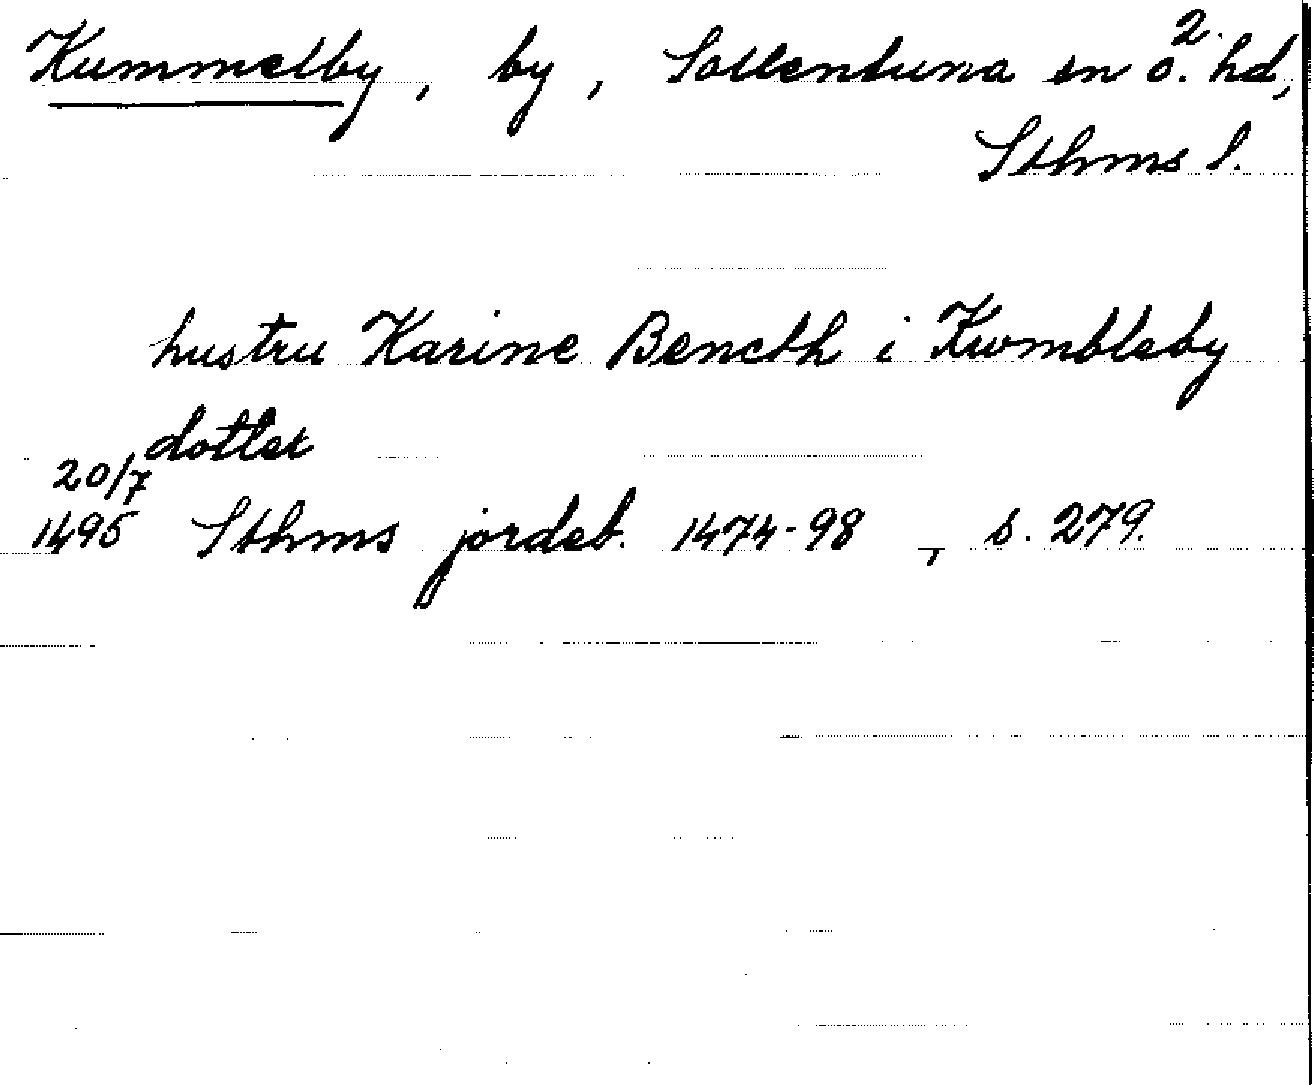 Kummelby, by, Sollentuna sn o. hd,
2.
Sthms l.
hustru Karine Bencth i Kwmbleby
dotter
20/7
1495 Sthms jordeb. 1474-98, s. 279.